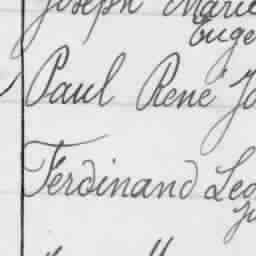 Joseph Marie
Euge
Paul René Jo
Ferdinand Leo